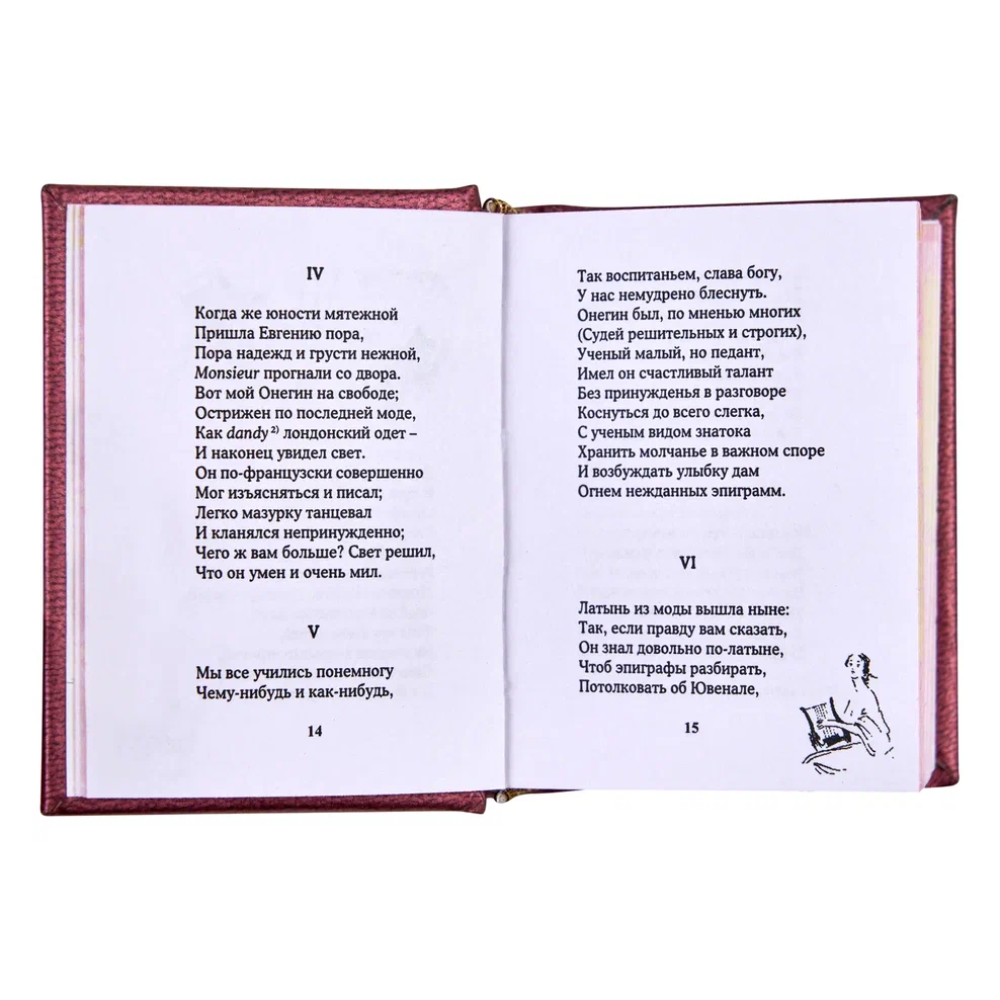 IV
Когда же юности мятежной
Пришла Евгению пора,
Пора надежд и грусти нежной,
Monsieur прогнали со двора.
Вот мой Онегин на свободе;
Острижен по последней моде,
Как dandy²⁾ лондонский одет –
И наконец увидел свет.
Он по-французски совершенно
Мог изъясняться и писал;
Легко мазурку танцевал
И кланялся непринужденно;
Чего ж вам больше? Свет решил,
Что он умен и очень мил.
V
Мы все учились понемногу
Чему-нибудь и как-нибудь,
14
Так воспитаньем, слава богу,
У нас немудрено блеснуть.
Онегин был, по мненью многих
(Судей решительных и строгих),
Ученый малый, но педант,
Имел он счастливый талант
Без принужденья в разговоре
Коснуться до всего слегка,
С ученым видом знатока
Хранить молчанье в важном споре
И возбуждать улыбку дам
Огнем нежданных эпиграмм.
VI
Латынь из моды вышла ныне:
Так, если правду вам сказать,
Он знал довольно по-латыне,
Чтоб эпиграфы разбирать,
Потолковать об Ювенале,
15